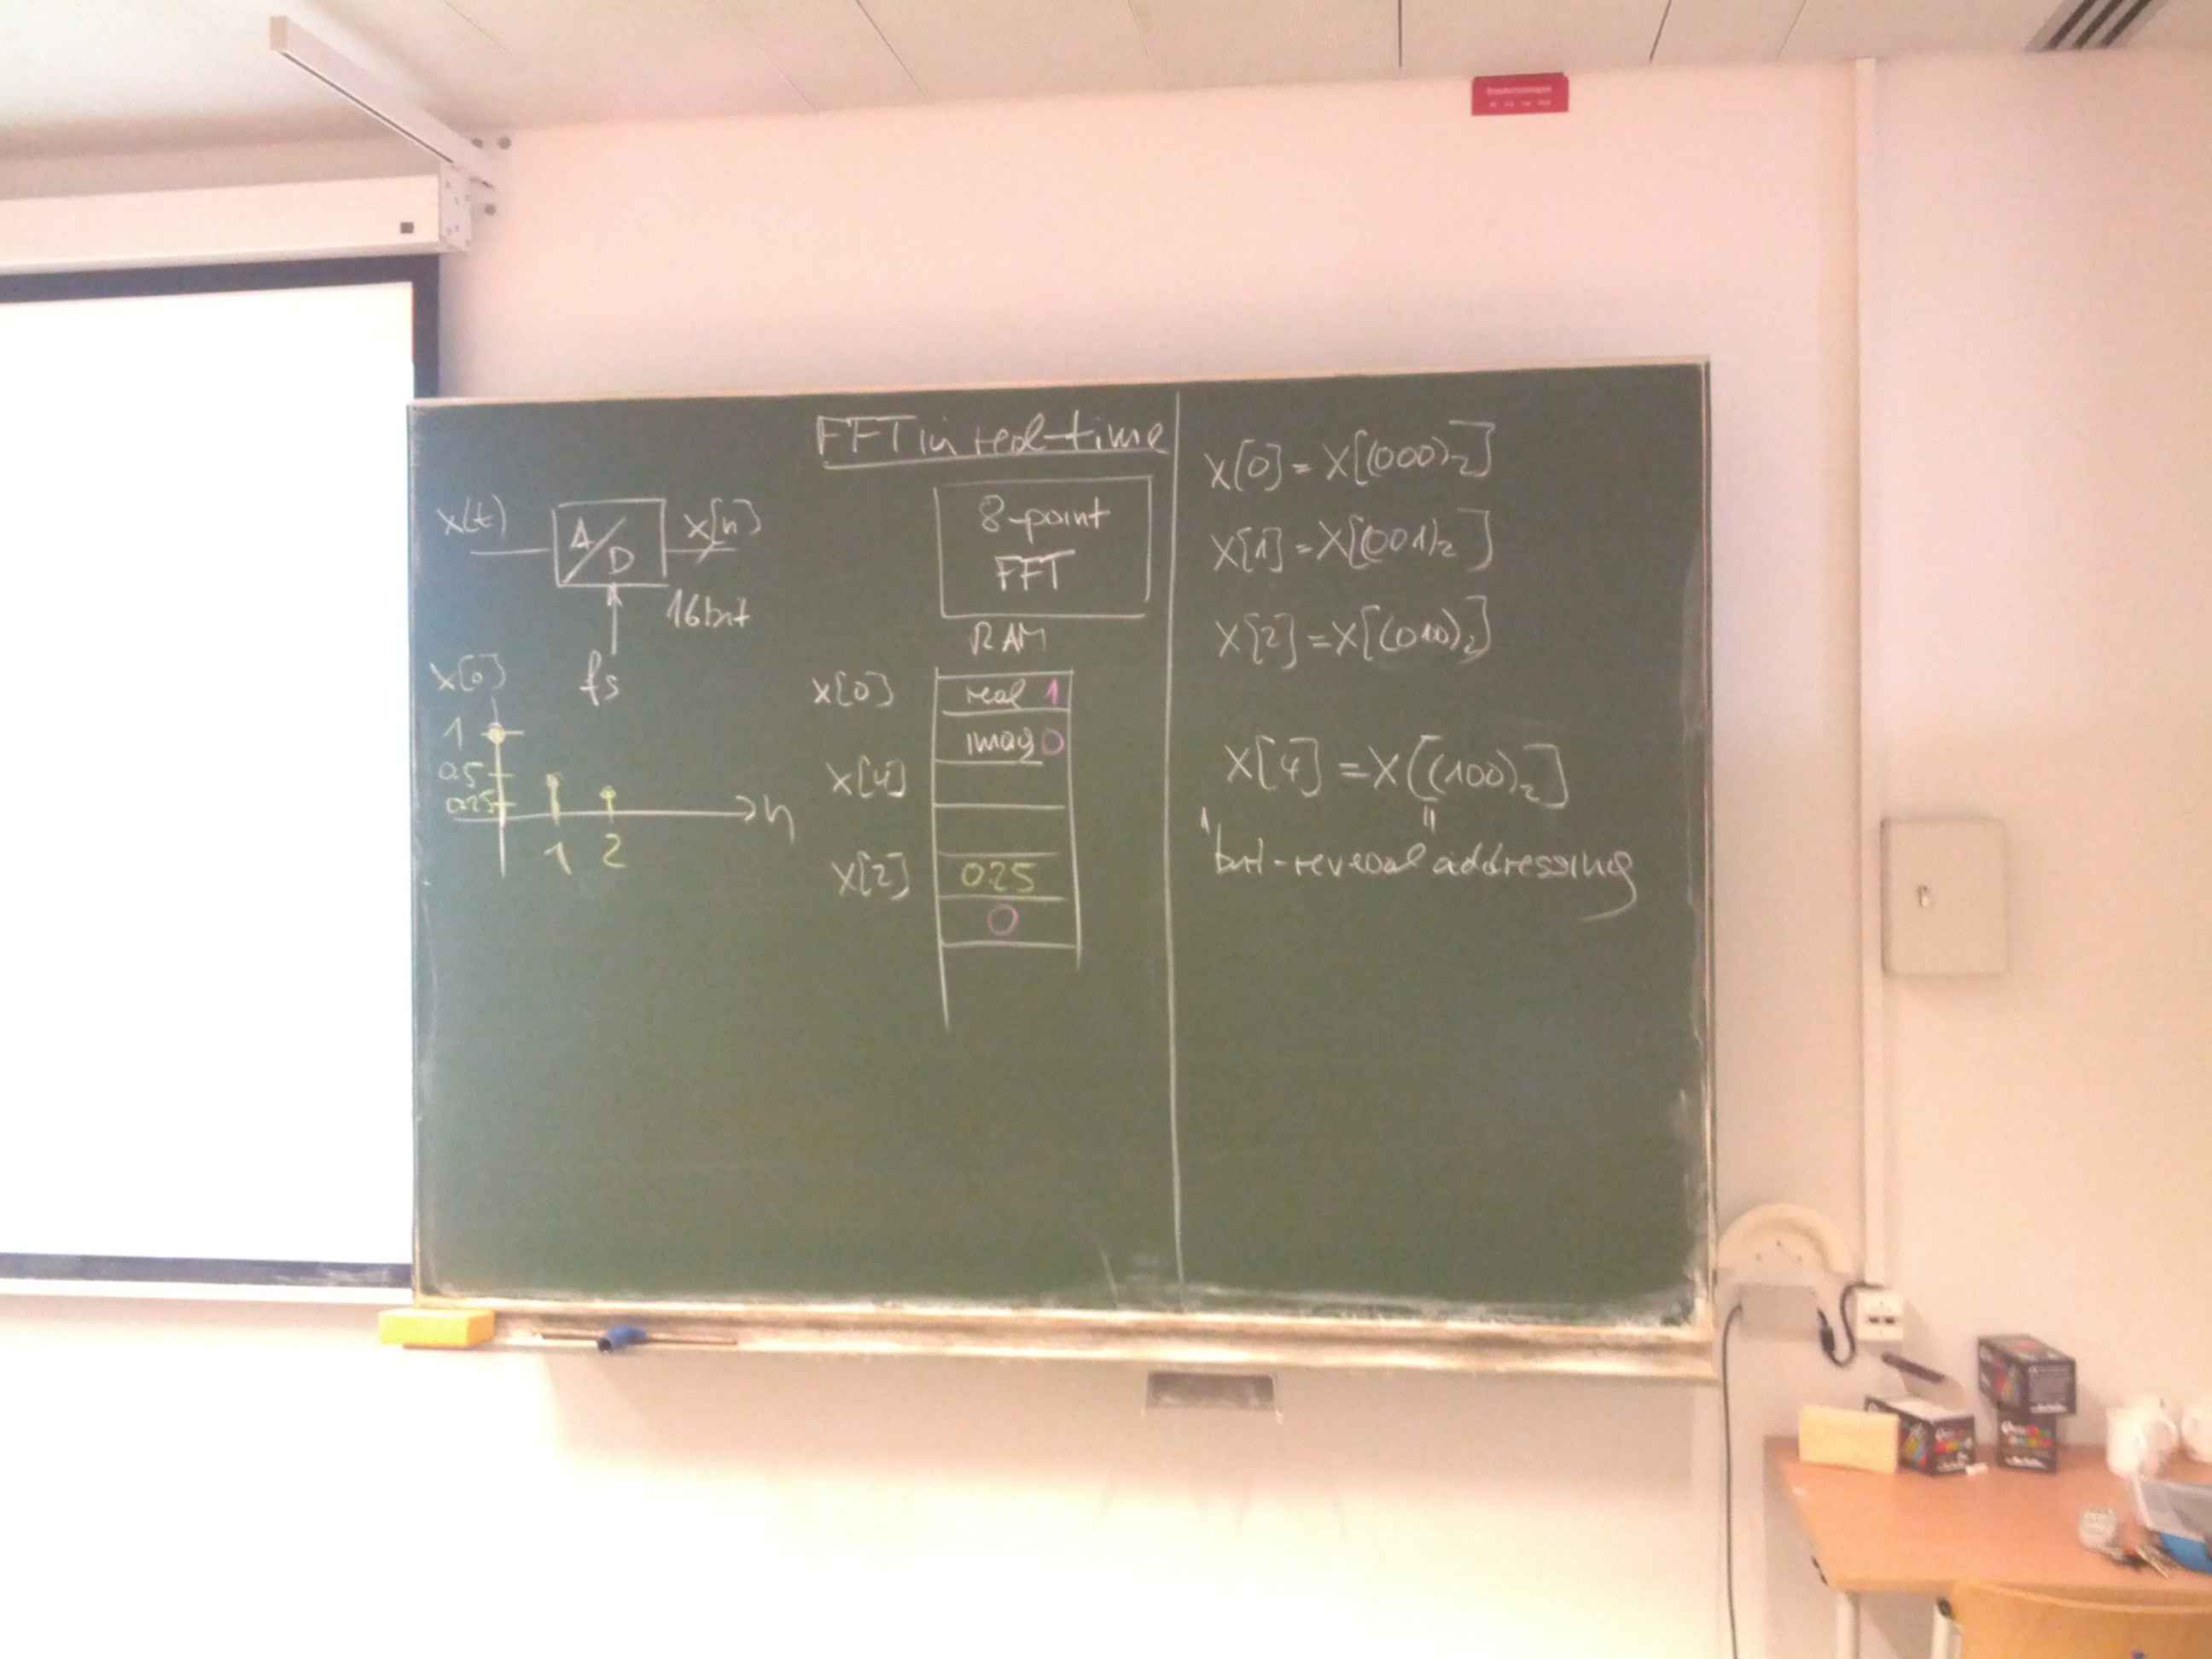 FFT in real-time
x(t)
A/D
x[n]
16bit
fs
x[0]
1
0.5
0.25
n
1
2
8-point
FFT
RAM
x[0]
real 1
imag 0
x[4]
x[2]
0.25
0
x[0] = x[(000)2]
x[1] = x[(001)2]
x[2] = x[(010)2]
x[4] = x[(100)2]
"bit-reversal addressing"